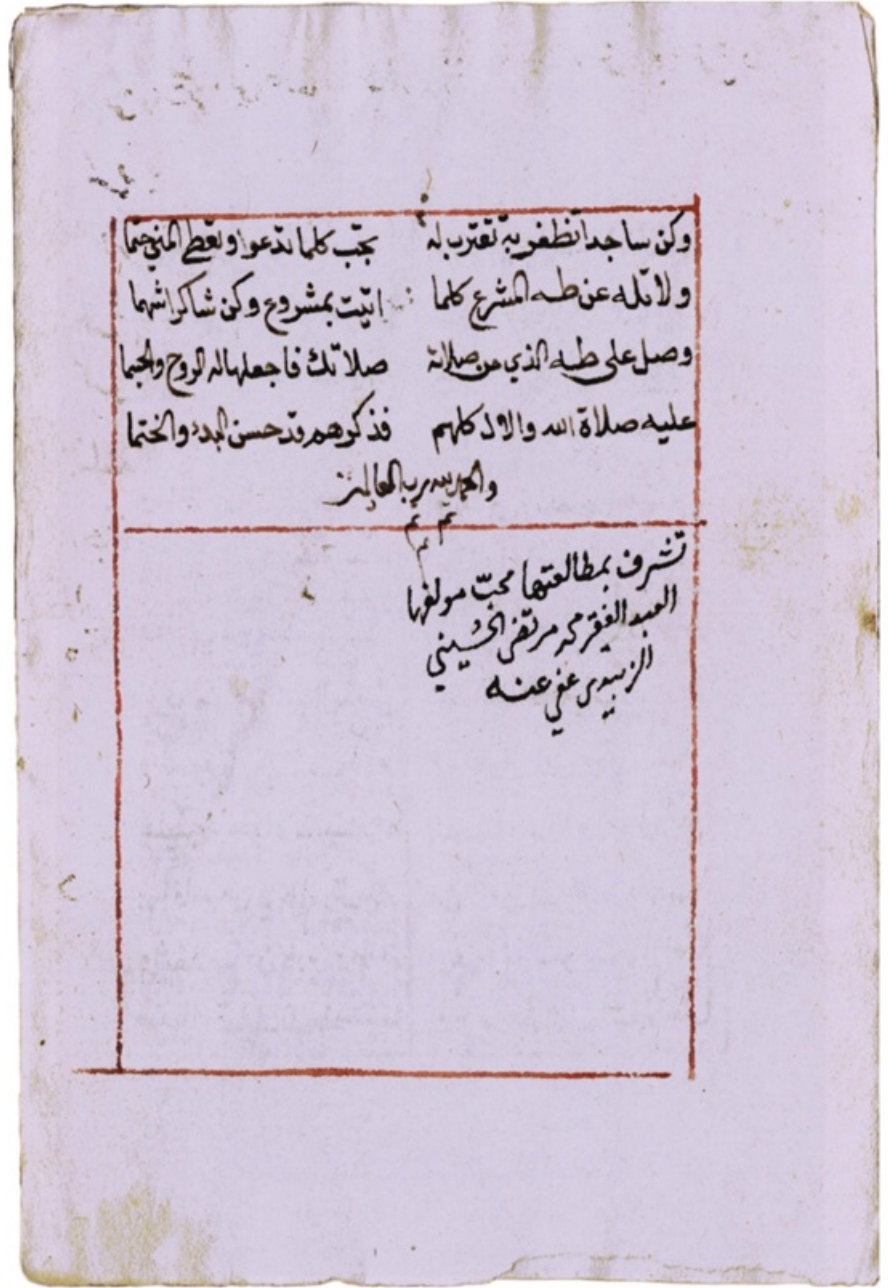 وكن ساجدا تظفر به تقترب له يجب كلما تدعو وتعطى المنى حتما
ولا تله عن طه المشرع كلما اتيت بمشروع وكن شاكرا شهما
وصل على طه الذي من صلاته صلاتك فاجعلها له الروح والجسما
عليه صلاة الله والال كلهم فذكرهم قد حسن البدء والختما
والحمد لله رب العالمين
تم تم تم
تشرف بمطالعتها محب مولفها
العبد الفقير محمد مرتضى الحُسيني
الزبيدي عفي عنه